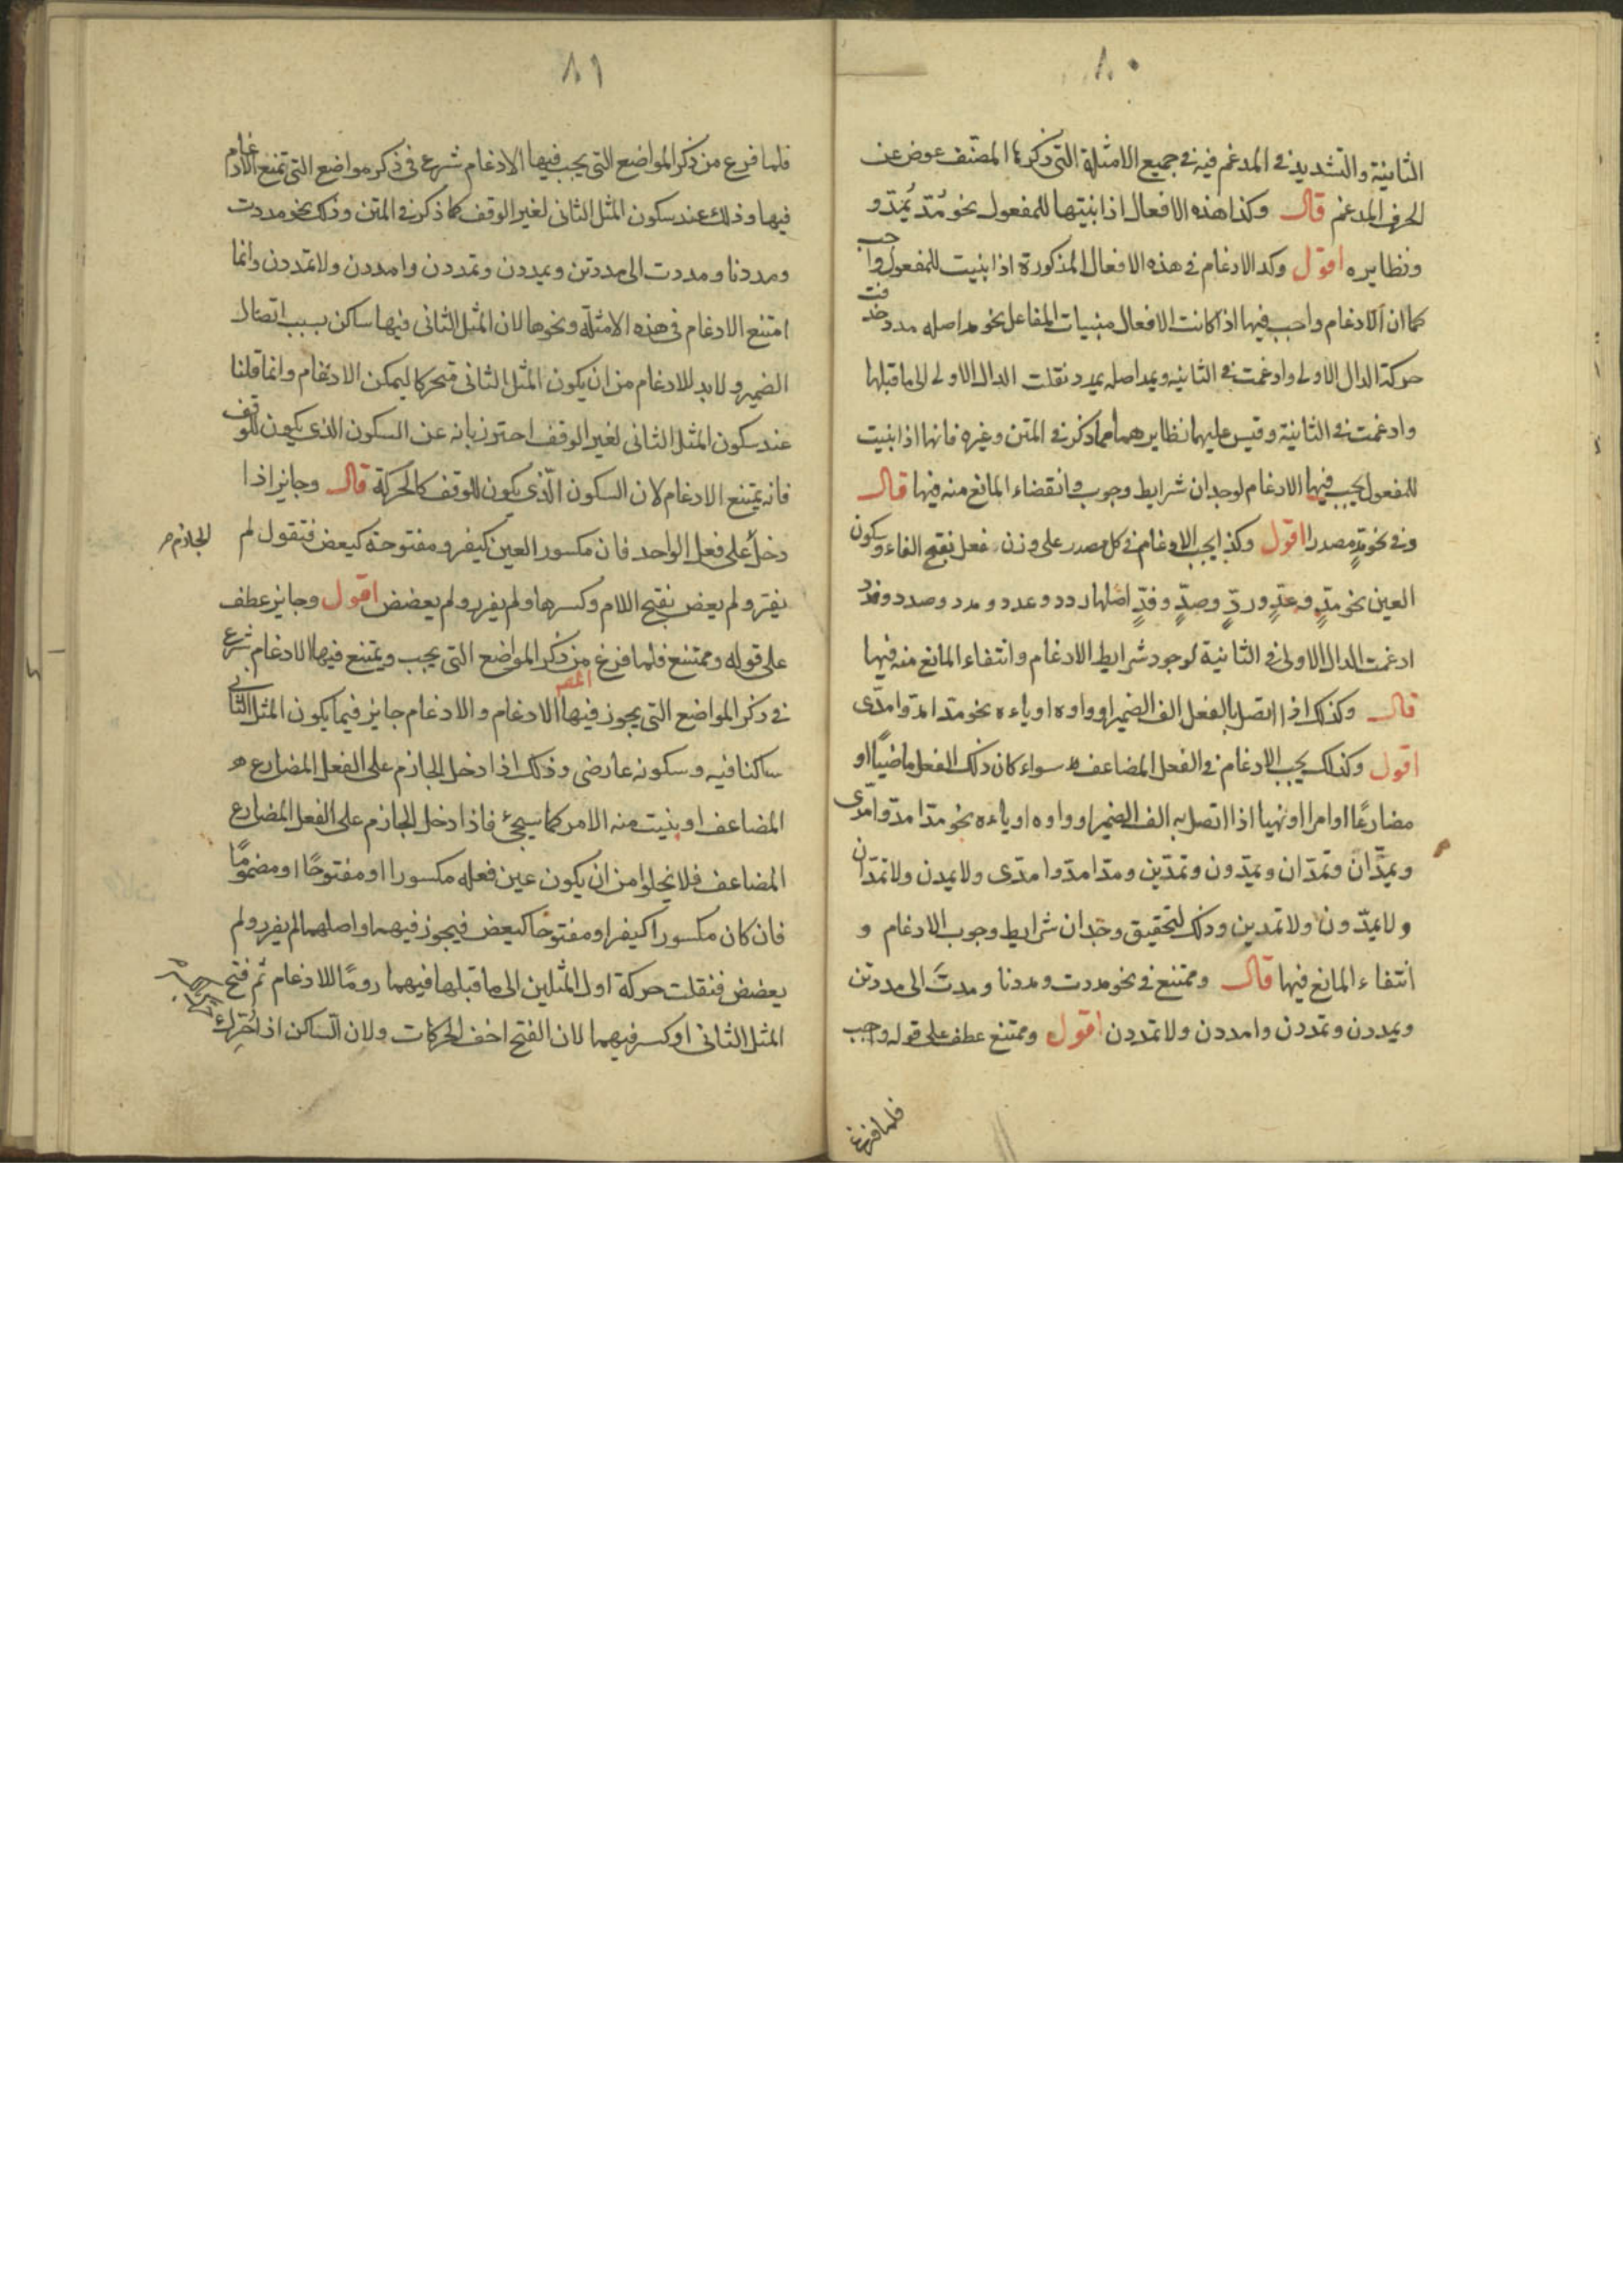 ٨٠
الثانية والتشديد في المدغم فيه في جميع الامثلة التى ذكرها المصنف عوض عن
الحرف المدغم قال وكذا هذه الافعال اذا بنيتها للمفعول نحو مُدّ يُمَدّ و
ونظايره اقول وكد الادغام في هذه الافعال المذكورة اذا بنيت للمفعول واجب
كما ان الادغام واجب فيها اذا كانت الافعال مبنيات المفاعل نحو مد اصله مدد حذفت
حركة الدال الاولى وادغمت في الثانيه ويمد اصله يمدد نقلت الدال الاولى الى ما قبلها
وادغمت في الثانية وقيس عليهما نظايرهما مما ذكر في المتن وغيره فانها اذا بنيت
للمفعول يجب فيها الادغام لوجدان شرايط وجوب وانقضاء المانع منه فيها قال
وفي نحو مدٍّ مصدرا اقول وكذا يجب الادغام في كل مصدر على وزن فعل بفتح الفاء وسكون
العين نحو مدٍّ وعدٍّ وردٍّ وصدٍّ وفدٍّ اصلها ردد وعدد ومدد وصدد وفدد
ادغمت الدال الاولى في الثانية لوجود شرايط الادغام وانتفاء المانع منه فيها
قال وكذلك اذا اتصل بالفعل الف الضمير او واوه او ياءه نحو مدا مدّوا مدّى
اقول وكذلك يجب الادغام في الفعل المضاعف سواء كان ذلك الفعل ماضيًا او
مضارعًا او امرا او نهيا اذا اتصل به الف الضمير او واوه او ياءه نحو مدّا مدّوا مدّى
ويمدّان وتمدّان ويمدّون وتمدّين ومدّا مدّوا مدّى ولا يمدن ولا تمدّان
ولا يمدّون ولا تمدين وذلك لتحقيق وجدان شرايط وجوب الادغام و
انتفاء المانع فيها قال وممتنع في نحو مددت ومددنا ومدتَ الى مددتن
ويمددن وتمددن وامددن ولا تمددن اقول وممتنع عطف على قوله واجب
فلما فرغ
٨١
فلما فرع من ذكر المواضع التى يجب فيها الادغام شرع في ذكر مواضع التى تمنع الادغام
فيها وذلك عند سكون المثل الثانى لغير الوقف كما ذكر في المتن وذلك نحو مددت
ومددنا ومددت الى مددتن ويمددن وتمددن وامددن ولا تمددن وانما
امتنع الادغام في هذه الامثلة ونحوها لان المثل الثانى فيها ساكن بسبب اتصال
الضمير ولا بد للادغام من ان يكون المثل الثانى متحركا ليمكن الادغام وانما قلنا
عند سكون المثل الثانى لغير الوقف احترز بانه عن السكون الذي يكون للوقف
فانه يمتنع الادغام لان السكون الّذى يكون للوقف كالحركة قال وجايز اذا
دخل على فعل الواحد فان مكسور العين كيفر ومفتوحة كيعض فتقول لم
الجازم
يفرّ ولم يعض بفتح اللام وكسرها ولم يفرر ولم يعضض اقول وجايز عطف
على قوله وممتنع فلما فرغ من ذكر المواضع التى يجب ويمتنع فيها الادغام شرع
المص
في ذكر المواضع التى يجوز فيها الادغام والادغام جايز فيما يكون المثل الثانى
ساكنا فيه وسكونه عارضى وذلك اذا دخل الجازم على الفعل المضارع
المضاعف او بنيت منه الامر كما سيجئ فاذا دخل الجازم على الفعل المضارع
المضاعف فلا يخلوا من ان يكون عين فعله مكسورا او مفتوحًا او مضمومًا
فان كان مكسورا كيفر او مفتوحًا كيعض فيجوز فيهما واصلهما لم يفرر ولم
يعضض فنقلت حركة اول المثلين الى ما قبلها فيهما رومًا للادغام ثم فتح
المثل الثانى او كسر فيهما لان الفتح اخف الحركات ولان الساكن اذا حُرِّك